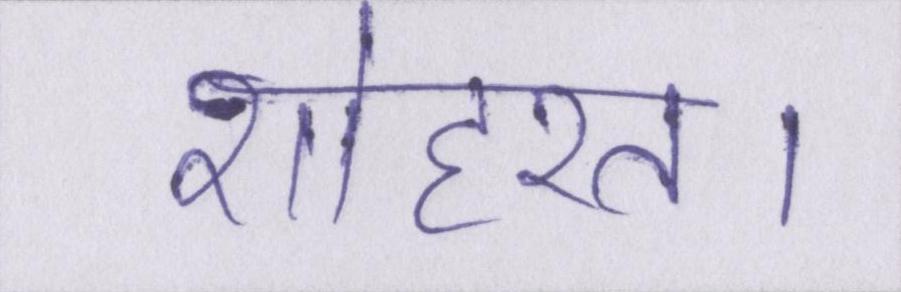 शोहरत।